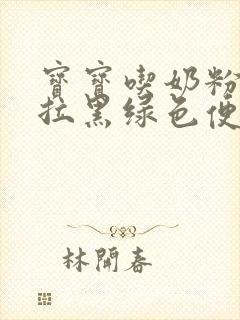 寶寶喫奶粉
拉黑綠色便
林開春